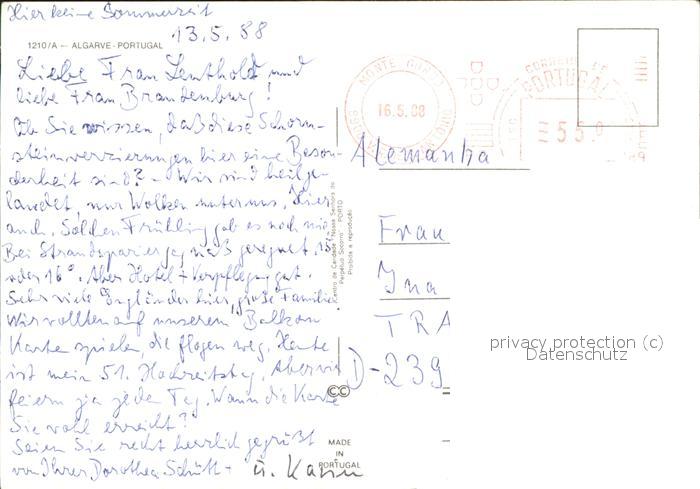 Hier keine Sommerzeit
13.5.88
1210/A — ALGARVE - PORTUGAL
Liebe Frau Leuthold und
liebe Frau Brandenburg!
Ob Sie wissen, daß diese Schorn-
steinverzierungen hier eine Beson-
derheit sind? – Wir sind heil ge-
landet, nur Wolken unter uns, hier
auch. Solchen Frühling gab es noch nie.
Bei Strandspazierg. naß geregnet, 15°
oder 16°. Aber Hotel + Verpflegg. gut.
Sehr viele Engländer hier, große Familien
Wir wollten auf unserem Balkon
Karte spielen, die flogen weg. Heute
ist mein 51. Hochzeitstag. Aber wir
feiern ja jeden Tag. Wann die Karte
Sie wohl erreicht?
Seien Sie recht herzlich gegrüßt
von Ihrer Dorothea Schütt -
u. Karin
MADE
IN
PORTUGAL
Centro de Caridade "Nossa Senhora do
Perpétuo Socorro" PORTO
Proibida a reprodução
MONTE GORDO
16.5.88
CORREIOS
PORTUGAL
Alemanha
Frau
Ina
TRA
D-239
privacy protection (c)
Datenschutz